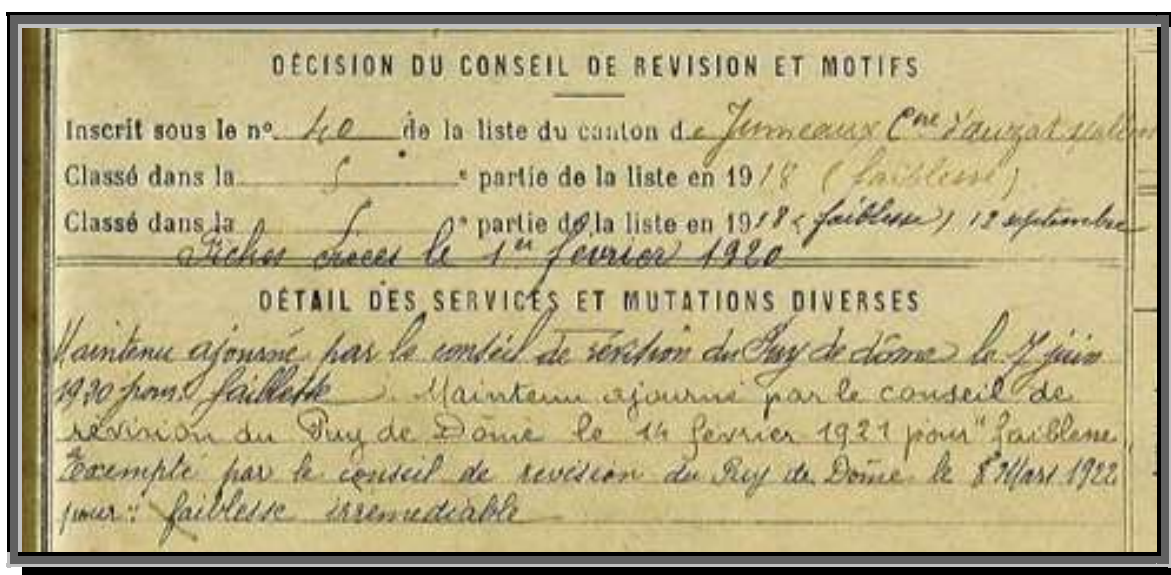 DÉCISION DU CONSEIL DE REVISION ET MOTIFS
Inscrit sous le n° 40 de la liste du canton de Jumeaux Cne d'auzat
Classé dans la 5 e partie de la liste en 1918 (faiblesse)
Classé dans la 5 e partie de la liste en 1918 (faiblesse) 12 septembre
Fiches créées le 1er février 1920
DÉTAIL DES SERVICES ET MUTATIONS DIVERSES
Maintenu ajourné par le conseil de révision du Puy de dôme le 7 juin
1920 pour: faiblesse. Maintenu ajourné par le conseil de
révision du Puy de Dôme le 14 fevrier 1921 pour "faiblesse
Exempté par le conseil de revision du Puy de Dôme le 8 Mars 1922
pour: faiblesse irremediable